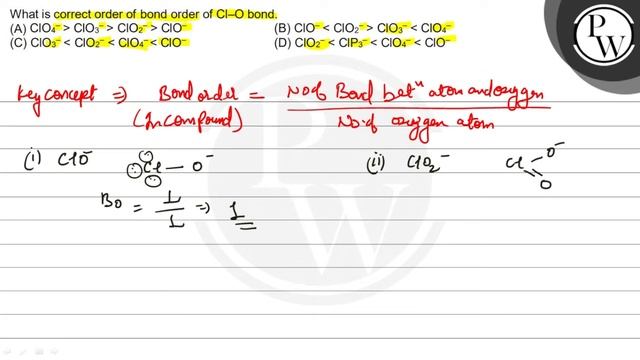 What is correct order of bond order of Cl–O bond.
(A) ClO₄⁻ > ClO₃⁻ > ClO₂⁻ > ClO⁻ (B) ClO⁻ < ClO₂⁻ > ClO₃⁻ < ClO₄⁻
(C) ClO₃⁻ < ClO₂⁻ < ClO₄⁻ < ClO⁻ (D) ClO₂⁻ < ClP₃⁻ < ClO₄⁻ < ClO⁻
PW
Key concept ⇒ Bond order = No of Bond betⁿ atom and oxygen
(In compound) No. of oxygen atom
(i) ClO⁻ Cl — O⁻ (ii) ClO₂⁻ Cl O⁻
O
BO = 1/1 ⇒ 1